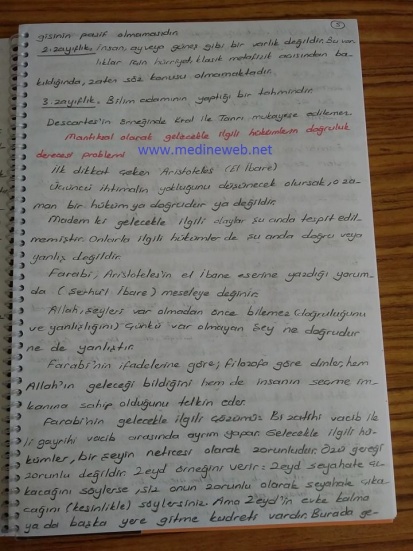 5
gisinin pasif olmamasıdır.
2. zayıflık. İnsan, ay veya güneş gibi bir varlık değildir. Bu var
lıklar için hürriyet, klasik metafizik açısından ba-
kıldığında, zaten söz konusu olmamaktadır.
3. zayıflık. Bilim adamının yaptığı bir tahmindir.
Descartes'in örneğinde Kral ile Tanrı mukayese edilemez.
Mantıksal olarak gelecekle ilgili hükümlerin doğruluk
derecesi problemi
www.medineweb.net
İlk dikkat çeken Aristoteles (El İbare)
Üçüncü ihtimalin yokluğunu düşünecek olursak, o za-
man bir hüküm ya doğrudur ya değildir.
Madem ki gelecekle ilgili olaylar şu anda tespit edil-
memiştir. Onlarla ilgili hükümler de şu anda doğru veya
yanlış değildir.
Farabi, Aristoteles'in el İbane eserine yazdığı yorum-
da (Şerhu'l İbare) meseleye değinir.
Allah, şeyleri var olmadan önce bilemez (doğruluğunu
ve yanlışlığını) Çünkü var olmayan şey ne doğrudur
ne de yanlıştır.
Farabi'nin ifadelerine göre; filozofa göre dinler, hem
Allah'ın geleceği bildiğini hem de insanın seçme im-
kanına sahip olduğunu telkin eder.
Farabi'nin gelecekle ilgili çözümü: Bi zatihi vacib ile
li gayrihi vacib arasında ayrım yapar. Gelecekle ilgili hü-
kümler, bir şeyin neticesi olarak zorunludur. Özü gereği
zorunlu değildir. Zeyd örneğini verir: Zeyd seyahate çı-
kacağını söylerse, siz onun zorunlu olarak seyahate çıka-
cağını (kesinlikle) söylersiniz. Ama Zeyd'in evde kalma
ya da başka yere gitme kudreti vardır. Burada ge-